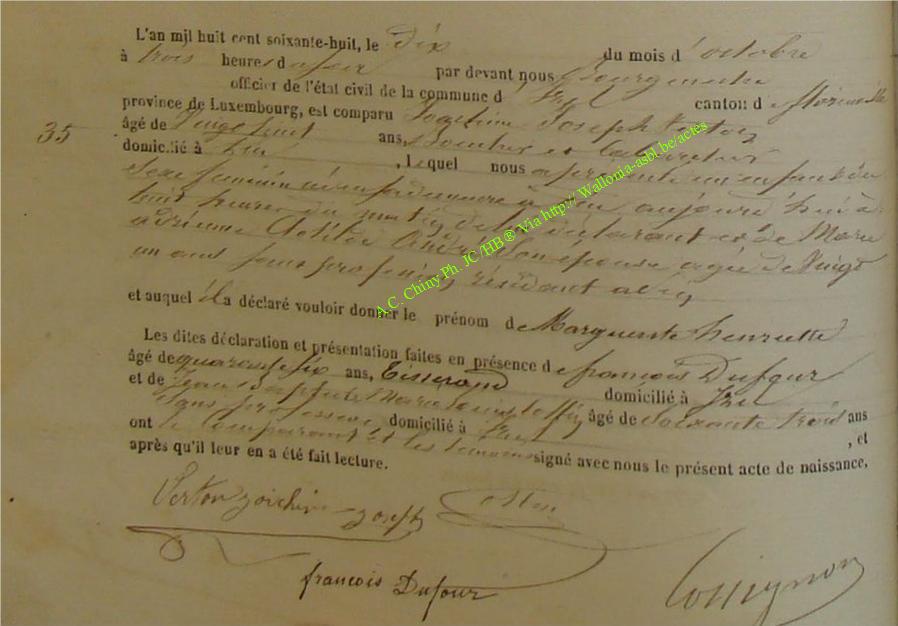 L'an mil huit cent soixante-huit, le dix du mois d'octobre
à trois heures du soir par devant nous Bourgmestre
officier de l'état civil de la commune d'Izel canton de Florenville
province de Luxembourg, est comparu Joachim Joseph
35
âgé de Vingt huit ans, et
domicilié à Izel, lequel nous a présenté un enfant du
sexe féminin né en sa demeure à Izel aujourd'hui à
huit heures du matin, de lui déclarant et de Marie
adrienne André Son épouse agée de Vingt
un ans sans profession, résidant à Izel
et auquel il a déclaré vouloir donner le prénom de Marguerite henriette
Les dites déclaration et présentation faites en présence de françois Dufour
âgé de quarante six ans, Tisserand domicilié à Izel
et de Jean âgé de Soixante trois ans
sans profession domicilié à Izel, et
ont le comparant et les témoins signé avec nous le présent acte de naissance,
après qu'il leur en a été fait lecture.
joseph
françois Dufour
A.C. Chiny Ph. JC /HB® Via http://Wallonia-asbl.be/actes